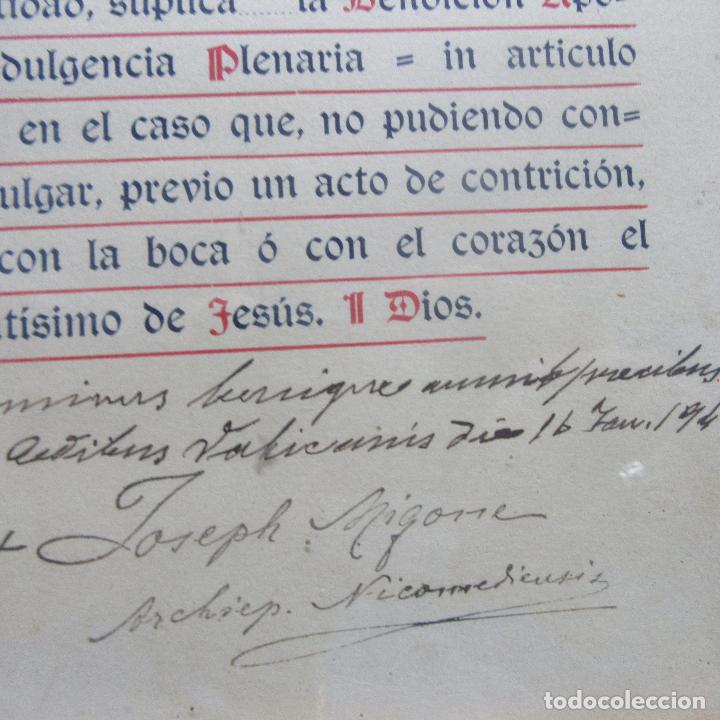 tidad, suplica ...... la Bendición Apo-
dulgencia Plenaria = in articulo
en el caso que, no pudiendo con=
ulgar, previo un acto de contrición,
con la boca ó con el corazón el
tísimo de Jesús. A Dios.
benigne annuit precibus
Aedibus Vaticanis die 16 Jan. 19
+ Joseph Migone
Archiep. Nicomediensis
todocoleccion.net